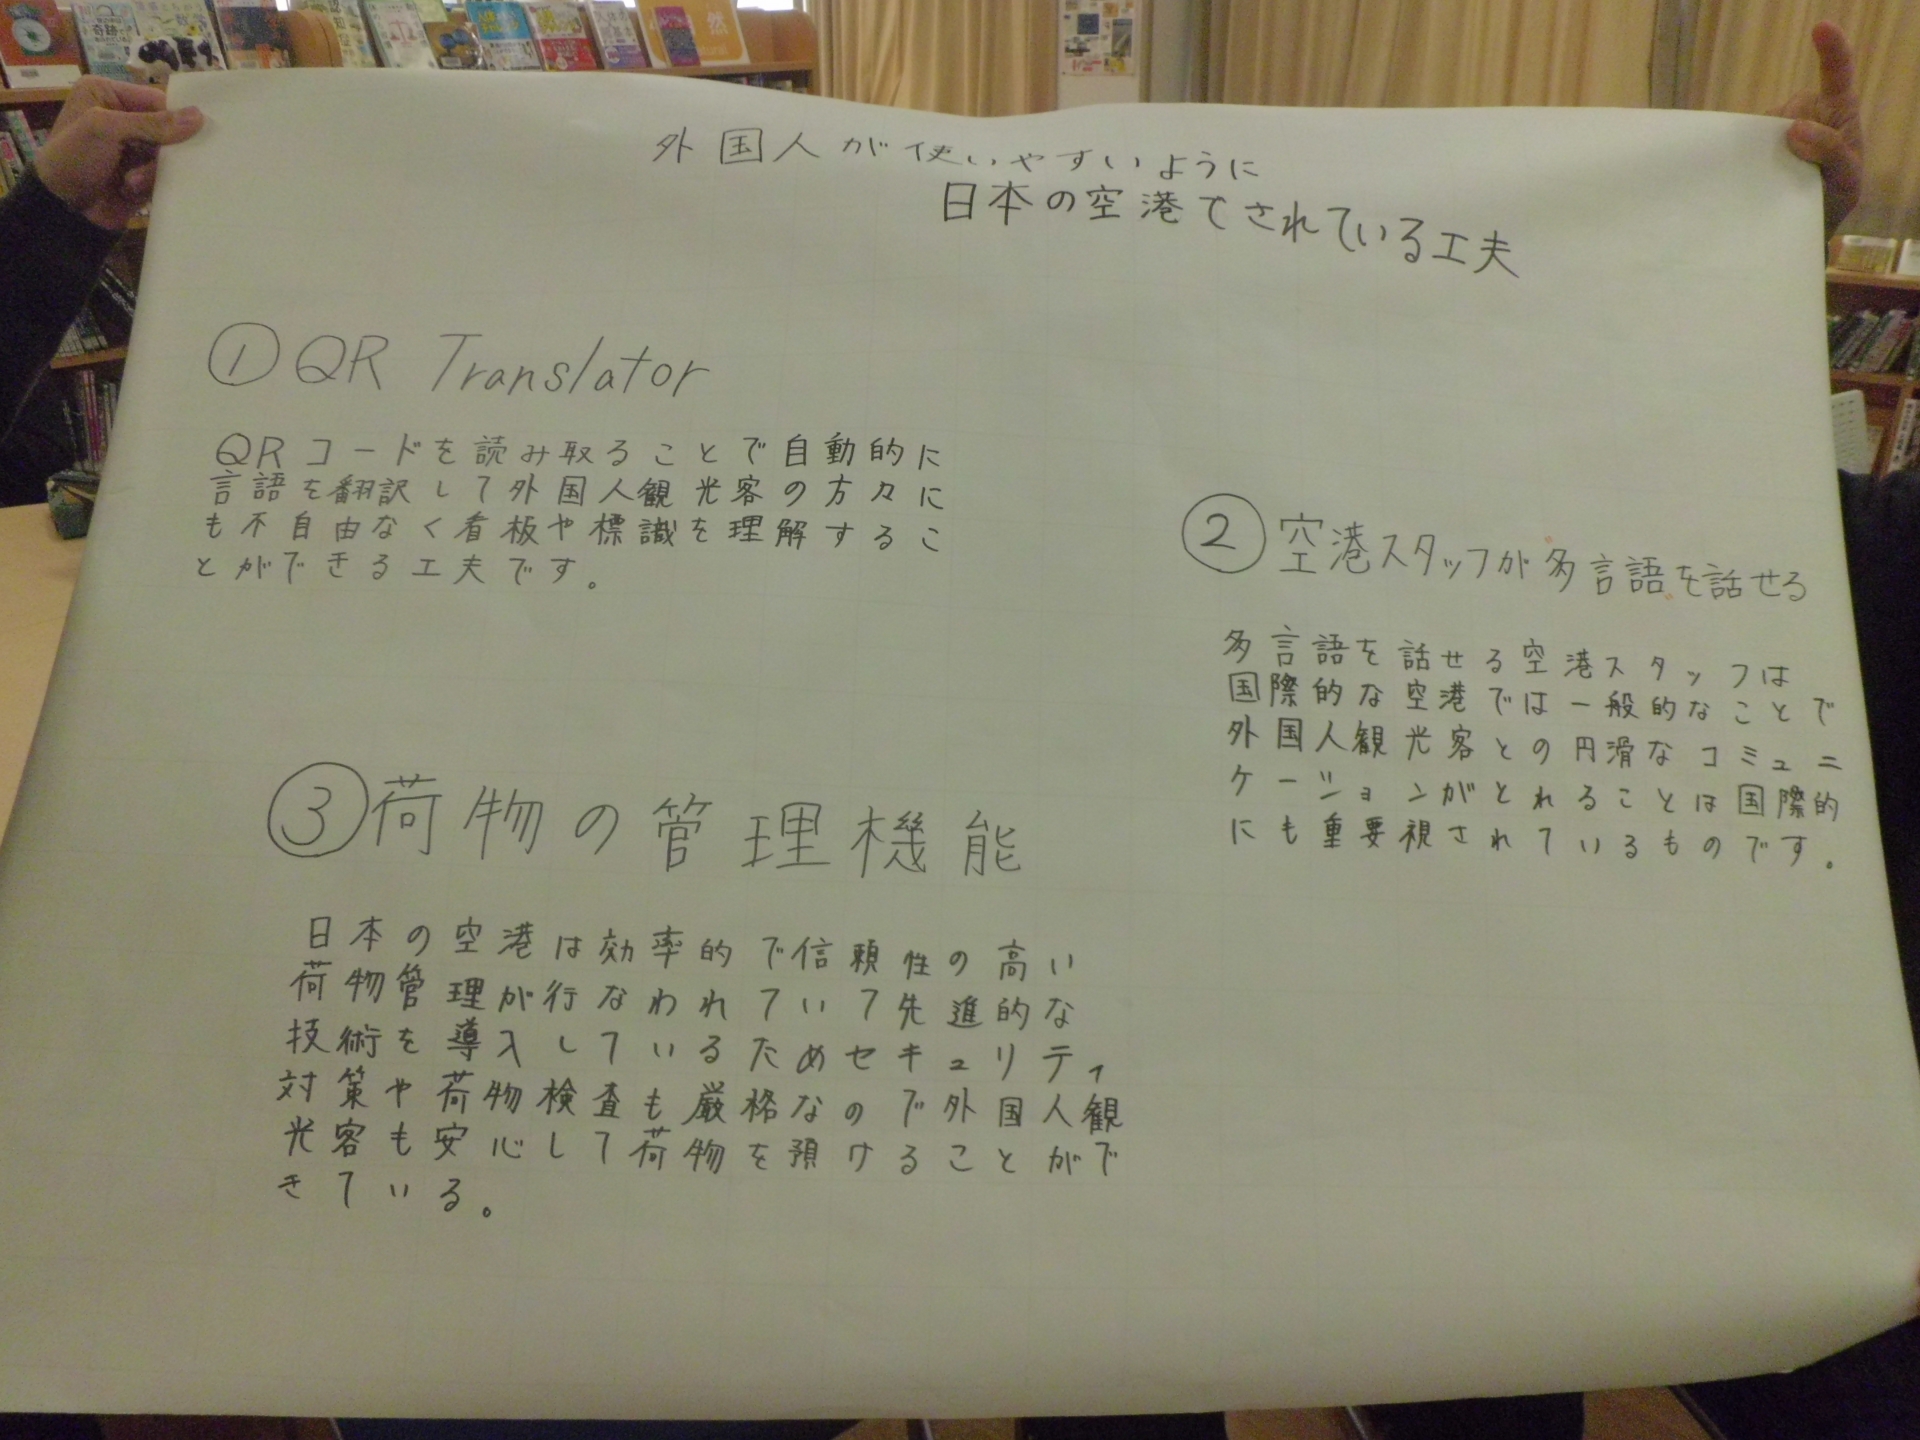 外国人が使いやすいように
日本の空港でされている工夫
① QR Translator
QRコードを読み取ることで自動的に
言語を翻訳して外国人観光客の方々に
も不自由なく看板や標識を理解するこ
とができる工夫です。
② 空港スタッフが多言語を話せる
多言語を話せる空港スタッフは
国際的な空港では一般的なことで
外国人観光客との円滑なコミュニ
ケーションがとれることは国際的
にも重要視されているものです。
③ 荷物の管理機能
日本の空港は効率的で信頼性の高い
荷物管理が行なわれていて先進的な
技術を導入しているためセキュリティ
対策や荷物検査も厳格なので外国人観
光客も安心して荷物を預けることがで
きている。